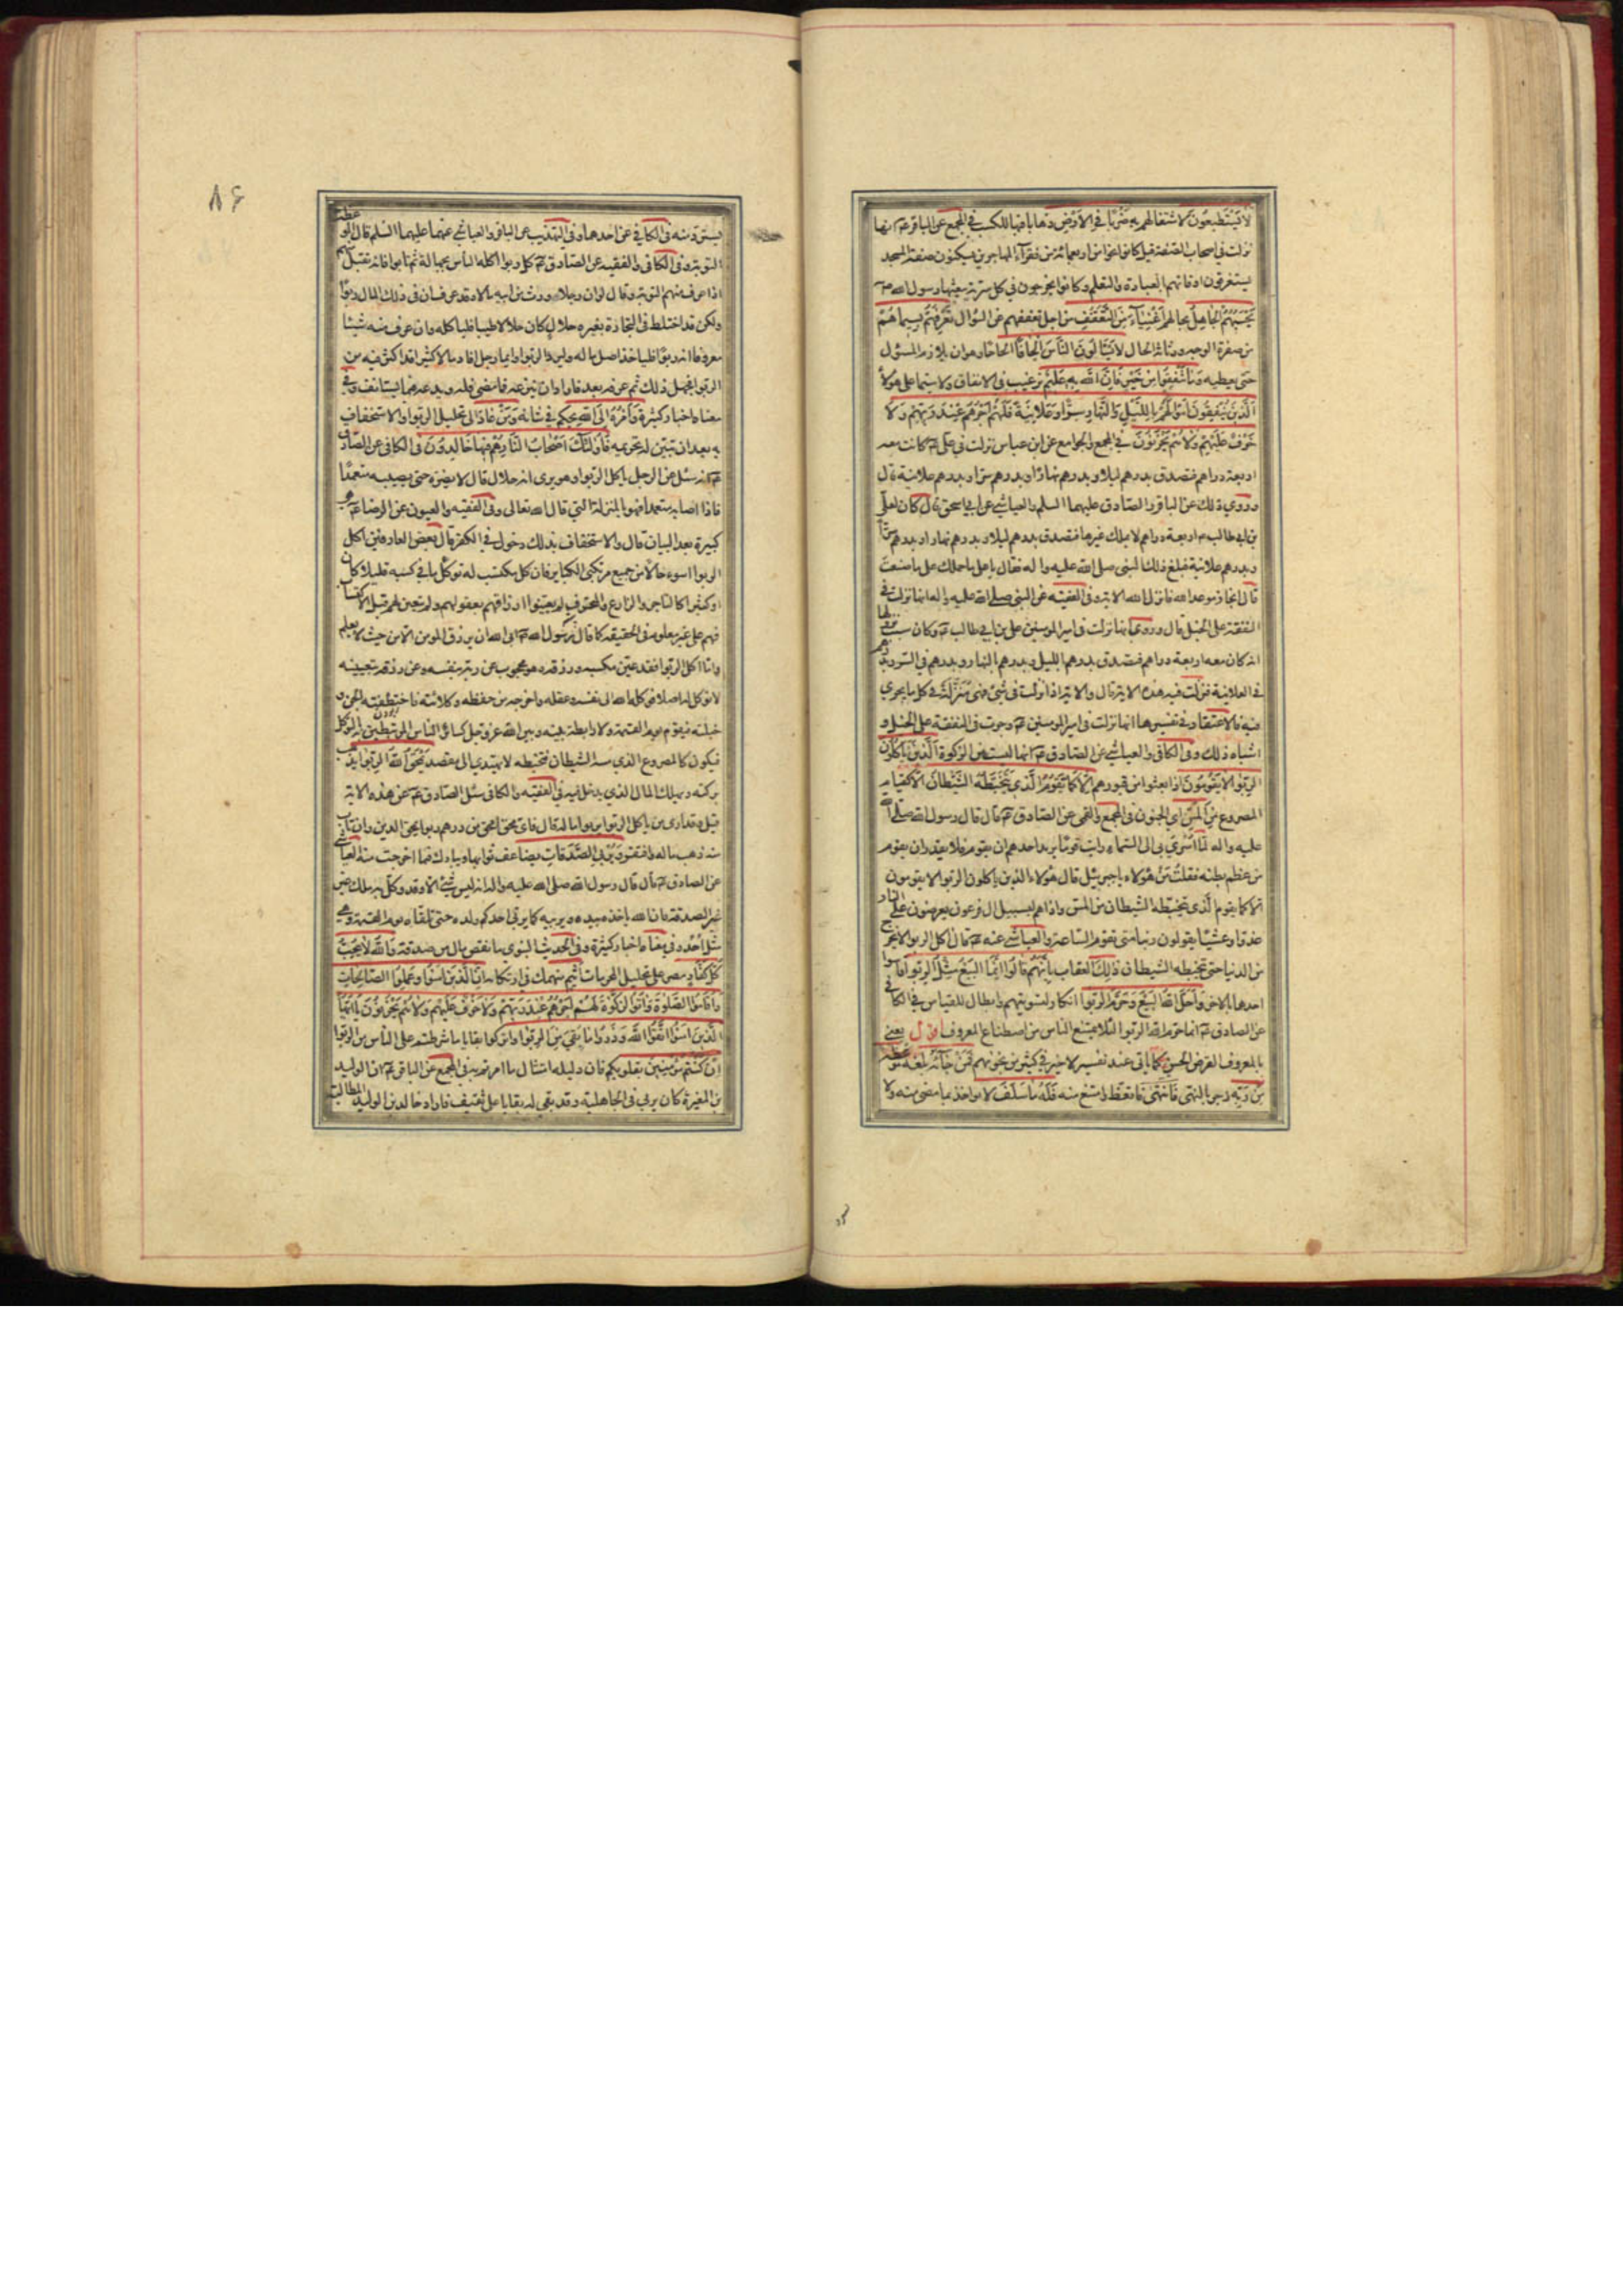 لا يَسْتَطيعُونَ لاشتغالهم به ضَرْبًا فِي الاَرْضِ ذهابا فيها للكسب في المجمع عن الباقر ع انها
نزلت في اصحاب الصفة قيل كانوا نحوا من اربعمائة من فقراء المهاجرين يسكنون صفة المسجد
يستغرقون اوقاتهم بالعبادة والتعلم وكانوا يخرجون في كل سرية يبعثها رسول الله ص
يَحْسَبُهُمُ الجاهِلُ بحالهم اَغْنِيَآءَ مِنَ التَّعَفُّفِ من اجل تعففهم عن السؤال تَعْرِفُهُمْ بِسِيماهُمْ
من صفرة الوجه ورثاثة الحال لا يَسْئَلُونَ النّاسَ اِلْحافًا الحاحا وهو ان يلازم المسؤل
حتى يعطيه وَما تُنْفِقُوا مِنْ خَيْرٍ فَاِنَّ اللهَ بِهِ عَليمٌ ترغيب في الانفاق ولا سيما على هؤلاء
اَلَّذينَ يُنْفِقُونَ اَمْوالَهُمْ بِاللَّيْلِ وَالنَّهارِ سِرًّا وَعَلانِيَةً فَلَهُمْ اَجْرُهُمْ عِنْدَ رَبِّهِمْ وَلا
خَوْفٌ عَلَيْهِمْ وَلا هُمْ يَحْزَنُونَ في المجمع والجوامع عن ابن عباس نزلت في علي ع كانت معه
اربعة دراهم فتصدق بدرهم ليلا وبدرهم نهارا وبدرهم سرا وبدرهم علانية قال
وروي ذلك عن الباقر والصادق عليهما السلم والعياشي عن ابي اسحق قال كان لعلي
بن ابي طالب ع اربعة دراهم لم يملك غيرها فتصدق بدرهم ليلا وبدرهم نهارا وبدرهم سرا
وبدرهم علانية فبلغ ذلك النبي صلى الله عليه واله فقال يا علي ما حملك على ما صنعت
قال انجاز موعد الله فانزل الله الاية وفي الفقيه عن النبي صلى الله عليه واله انها نزلت في
النفقة على الخيل قال وروي انها نزلت في امير المؤمنين علي بن ابي طالب ع وكان سبب نزولها
انه كان معه اربعة دراهم فتصدق بدرهم بالليل وبدرهم بالنهار وبدرهم في السر وبدرهم
في العلانية فنزلت فيه هذه الاية قال والاية اذا نزلت في شيء فهي منزلة في كل ما يجري
فيه فالاعتقاد في تفسيرها انها نزلت في امير المؤمنين ع وجرت في النفقة على الخيل و
اشباه ذلك وفي الكافي والعياشي عن الصادق ع انها ليست من الزكوة اَلَّذينَ يَاْكُلُونَ
الرِّبوا لا يَقُومُونَ اذا بعثوا من قبورهم اِلاّ كَما يَقُومُ الَّذي يَتَخَبَّطُهُ الشَّيْطانُ الا كقيام
المصروع مِنَ المَسِّ اي الجنون في المجمع والقمي عن الصادق ع قال قال رسول الله صلى الله
عليه واله لما اُسْرِيَ بي الى السماء رايت قوما يريد احدهم ان يقوم فلا يقدر ان يقوم
من عظم بطنه فقلت من هؤلاء يا جبرئيل قال هؤلاء الذين ياكلون الربوا لا يقومون
الا كما يقوم الذي يتخبطه الشيطان من المس واذا هم بسبيل ال فرعون يعرضون على النار
غدوا وعشيا يقولون ربنا متى تقوم الساعة والعياشي عنه ع قال اكل الربوا لا يخرج
من الدنيا حتى يتخبطه الشيطان ذلِكَ العقاب بِاَنَّهُمْ قالُوا اِنَّمَا البَيْعُ مِثْلُ الرِّبوا قاسوا
احدهما بالاخر وَاَحَلَّ اللهُ البَيْعَ وَحَرَّمَ الرِّبوا انكار لتسويتهم وابطال للقياس في الكافي
عن الصادق ع انما حرم الله الربوا لئلا يمتنع الناس من اصطناع المعروف اقول يعني
بالمعروف القرض الحسن كما ياتي عند تفسير لا خير في كثير من نجويهم فَمَنْ جآءَهُ بلغه مَوْعِظَةٌ
مِنْ رَبِّهِ زجر بالنهي فَانْتَهى فاتعظ وامتنع منه فَلَهُ ما سَلَفَ لا يؤاخذ بما مضى منه ولا
٨٦
يسترد منه في الكافي عن احدهما وفي التهذيب عن الباقر والعياشي عنهما عليهما السلم قال الموعظة
التوبة وفي الكافي والفقيه عن الصادق ع كل ربوا اكله الناس بجهالة ثم تابوا فانه تقبل منهم
اذا عرف منهم التوبة وقال لو ان رجلا ورث من ابيه مالا وقد عرف ان في ذلك المال ربوًا
ولكن قد اختلط في التجارة بغيره حلال كان حلالا طيبا فلياكله وان عرف منه شيئا
معروفا انه ربوًا فلياخذ راس ماله وليرد الربوا وايما رجل افاد مالا كثيرا قد اكثر فيه من
الربوا فجهل ذلك ثم عرفه بعد فاراد ان ينزعه فما مضى فله ويدعه فيما يستانف وفي
معناه اخبار كثيرة وَاَمْرُهُ اِلَى اللهِ يحكم في شانه وَمَنْ عادَ الى تحليل الربوا والاستخفاف
به بعد ان تبين له تحريمه فَاُولئِكَ اَصْحابُ النّارِ هُمْ فيها خالِدُونَ في الكافي عن الصادق
ع انه سئل عن الرجل ياكل الربوا وهو يرى انه حلال قال لا يضره حتى يصيبه متعمدا
فاذا اصابه متعمدا فهو بالمنزلة التي قال الله تعالى وفي الفقيه والعيون عن الرضا ع وهي
كبيرة بعد البيان قال والاستخفاف بذلك دخول في الكفر قال بعض العارفين اكل
الربوا اسوء حالا من جميع مرتكبي الكباير فان كل مكتسب له توكل ما في كسبه قليلا كان
او كثيرا كالتاجر والزارع والمحترف لم يعينوا ارزاقهم بعقولهم ولم تتعين لهم قبل الاكتساب
فهم على غير معلوم في الحقيقة كما قال رسول الله ص ابى الله ان يرزق المؤمن الا من حيث لا يعلم
واما اكل الربوا فقد عين مكسبه ورزقه وهو محجوب عن ربه بنفسه وعن رزقه بتعيينه
لا توكل له اصلا فوكله الله الى نفسه وعقله واخرجه من حفظه وكلائته فاختطفته الجن و
خبلته فيقوم يوم القيمة ولا رابطة بينه وبين الله عز وجل كسائر الناس المرتبطين به بالتوكل
فيكون كالمصروع الذي مسه الشيطان فتخبطه لا يهتدي الى مقصد يَمْحَقُ اللهُ الرِّبوا يذهب
بركته ويهلك المال الذي يدخل فيه في الفقيه والكافي سئل الصادق ع عن هذه الاية
قيل وقد ارى من ياكل الربوا يربوا ماله قال فاي محق امحق من درهم ربوا يمحق الدين وان تاب
منه ذهب ماله وافتقر وَيُرْبِي الصَّدَقاتِ يضاعف ثوابها ويبارك فيما اخرجت منه العياشي
عن الصادق ع قال قال رسول الله صلى الله عليه واله انه ليس شيء الا وقد وكل به ملك غير
غير الصدقة فان الله ياخذه بيده ويربيه كما يربي احدكم ولده حتى تلقاه يوم القيمة وهي
مثل احد وفي معناه اخبار كثيرة وفي الحديث النبوي ما نقص مال من صدقة وَاللهُ لا يُحِبُّ
كُلَّ كَفّارٍ مصر على تحليل المحرمات اَثيمٍ منهمك في ارتكابه اِنَّ الَّذينَ امَنُوا وَعَمِلُوا الصّالِحاتِ
وَاَقامُوا الصَّلوةَ وَاتَوُا الزَّكوةَ لَهُمْ اَجْرُهُمْ عِنْدَ رَبِّهِمْ وَلا خَوْفٌ عَلَيْهِمْ وَلا هُمْ يَحْزَنُونَ يا اَيُّهَا
الَّذينَ امَنُوا اتَّقُوا اللهَ وَذَرُوا ما بَقِيَ مِنَ الرِّبوا واتركوا بقايا ما شرطتم على الناس من الربوا
اِنْ كُنْتُمْ مُؤْمِنينَ بقلوبكم فان دليله امتثال ما امرتم به في المجمع عن الباقر ع ان الوليد
بن المغيرة كان يربي في الجاهلية وقد بقي له بقايا على ثقيف فاراد خالد بن الوليد المطالبة